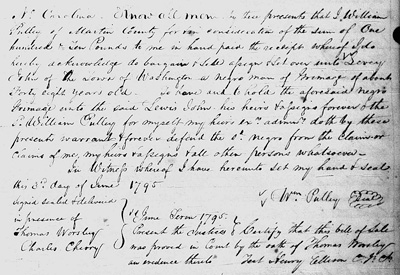 No Carolina. Know all men by these presents that I William
Pulley of Martin County for & in consideration of the sum of One
hundred & ten Pounds to me in hand paid the receipt whereof I do
hereby acknowledge do bargain & Sale assign Set over unto Lewey
John of the town of Washington a negro man of Fromage of about
Forty eight years old. to have and to hold the aforesaid negro
Fromage unto the said Lewis John his heirs & assigns forever & the
Sd William Pulley for myself my heirs exr admrs doth by these
presents warrant & forever defend the sd negro from the claim or
claims of me, my heirs & assigns & all other persons whatsoever
In Witness whereof I have hereunto set my hand & seal
this 3d day of June 1795
Signed sealed & delivered
in presence of
Thomas Worsley
Charles Cherry
Wm Pulley Seal
June Term 1795.
Present the Justices & Certify that this bill of sale
was proved in Court by the oath of Thomas Worsley
an evidence thereto Test Henry Ellison